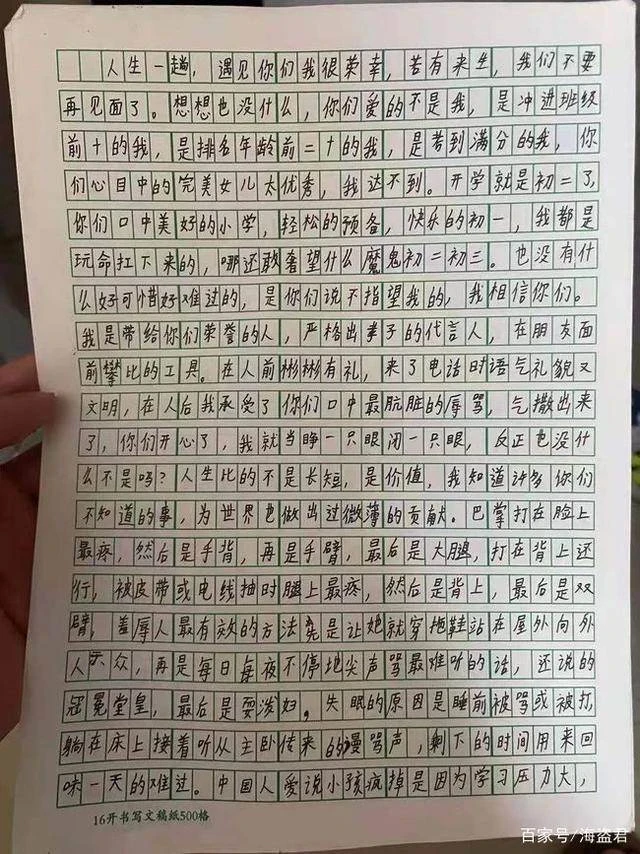 人生一趟，遇见你们我很荣幸，苦有来生，我们不要
再见面了。想想也没什么，你们爱的不是我，是冲进班级
前十的我，是排名年龄前二十的我，是考到满分的我，你
们心目中的完美女儿太优秀，我达不到。开学就是初二了，
你们口中美好的小学，轻松的预备，快乐的初一，我都是
玩命扛下来的，哪还敢奢望什么魔鬼初二初三。也没有什
么好可惜好难过的，是你们说不指望我的，我相信你们。
我是带给你们荣誉的人，严格出孝子的代言人，在朋友面
前攀比的工具。在人前彬彬有礼，来了电话时语气礼貌又
文明，在人后我承受了你们口中最肮脏的辱骂，气撒出来
了，你们开心了，我就当睁一只眼闭一只眼，反正也没什
么不是吗？人生比的不是长短，是价值，我知道许多你们
不知道的事，为世界也做出过微薄的贡献。巴掌打在脸上
最疼，然后是手背，再是手臂，最后是大腿，打在背上还
行，被皮带或电线抽时腿上最疼，然后是背上，最后是双
臂，羞辱人最有效的方法先是让她就穿拖鞋站在屋外向外
人示众，再是每日每夜不停地尖声骂最难听的话，还说的
冠冕堂皇，最后是耍泼妇。失眠的原因是睡前被骂或被打，
躺在床上接着听从主卧传来的谩骂声，剩下的时间用来回
味一天的难过。中国人爱说小孩疯掉是因为学习压力大，
16开书写文稿纸500格
百家号/海盗君